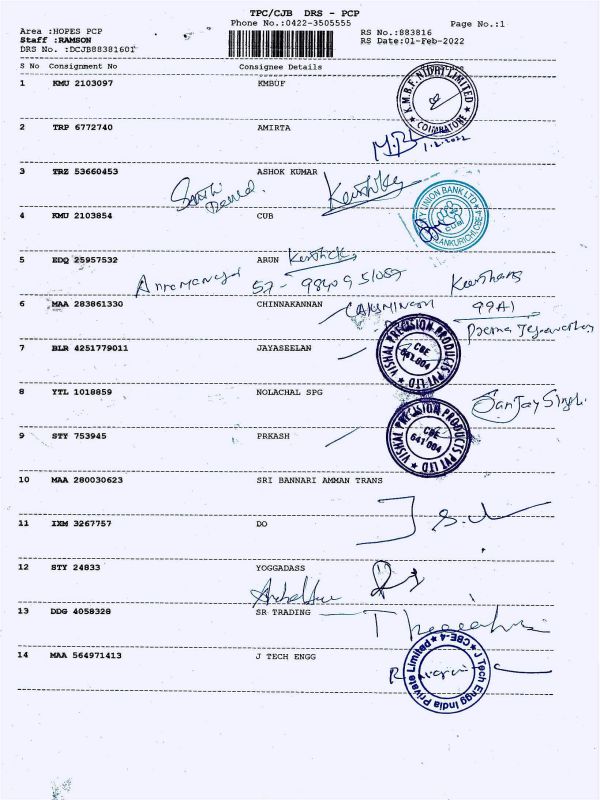 TPC/CJB DRS - PCP
Phone No.:0422-3505555
Page No.:1
Area :HOPES PCP
Staff :RAMSON
DRS No. :DCJB883816OI
RS No.:883816
RS Date:01-Feb-2022
S No Consignment No Consignee Details
1 KMU 2103097 KMBUF
K.M.B.F. NIDHI LIMITED
COIMBATORE
2 TRP 6772740 AMIRTA
1.2.2022
3 TRZ 53660453 ASHOK KUMAR
4 KMU 2103854 CUB
UNION BANK LTD
CUB
5 EDQ 25957532 ARUN
6 MAA 283861330 CHINNAKANNAN
99A1
7 BLR 4251779011 JAYASEELAN
VISHAL PRECISION PRODUCTS PVT LTD
CBE
641 004
8 YTL 1018859 NOLACHAL SPG
Sanjay Singh
9 STY 753945 PRKASH
VISHAL PRECISION PRODUCTS PVT LTD
CBE
641 004
10 MAA 280030623 SRI BANNARI AMMAN TRANS
11 IXM 3267757 DO
12 STY 24833 YOGGADASS
13 DDG 4058328 SR TRADING
14 MAA 564971413 J TECH ENGG
J Tech Engg India Private Limited
CBE-4